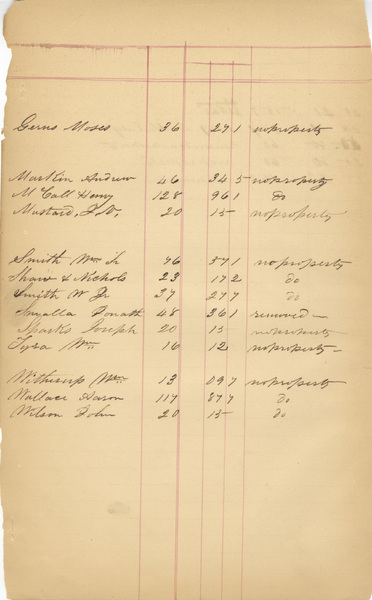 Gerus Moses 36 27 1 noproperty
Martin Andrew 46 34 5 noproperty
McCall Henry 128 96 1 do
Mustard, 20 15 noproperty
Smith Wm Sr 76 57 1 noproperty
Shaw & Nichols 23 17 2 do
Smith W Jr 37 27 7 do
48 36 1 removed —
Sparks Joseph 20 15 noproperty
Wm 16 12 noproperty —
Witherup Wm 13 09 7 noproperty
Wallace Aaron 117 87 7 do
Wilson John 20 15 do